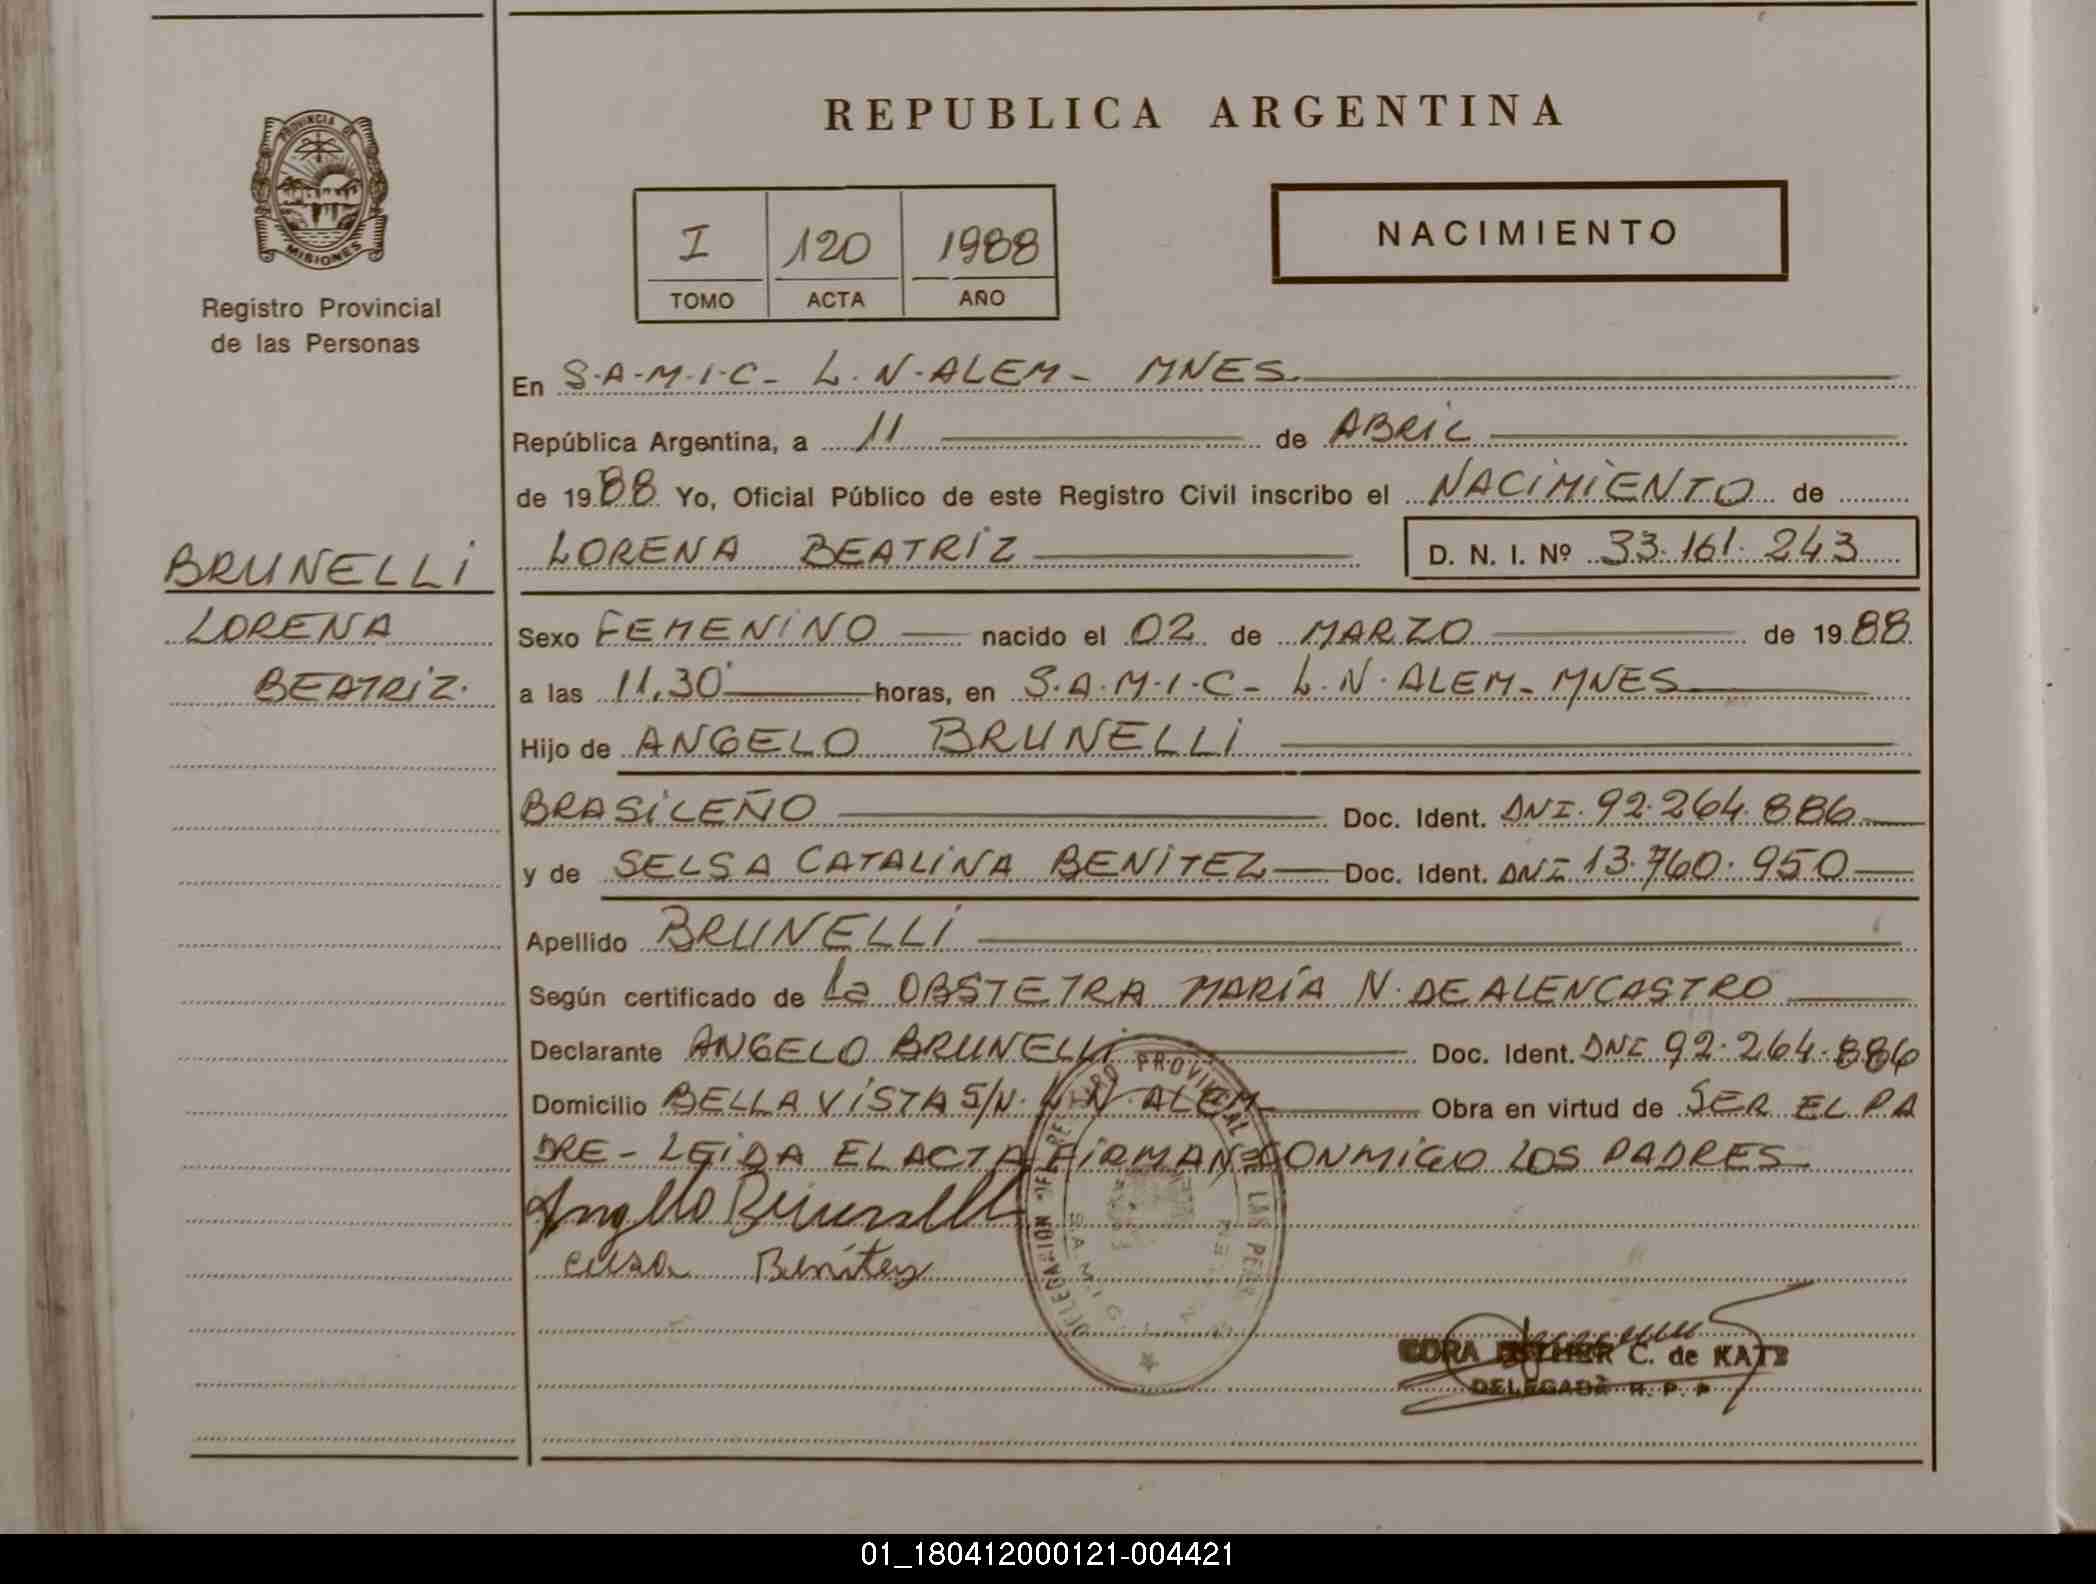 REPUBLICA ARGENTINA
PROVINCIA DE
MISIONES
Registro Provincial
de las Personas
I 120 1988
TOMO ACTA AÑO
NACIMIENTO
En S.A.M.I.C- L.N.ALEM- MNES.
República Argentina, a 11 de ABRIL
de 1988 Yo, Oficial Público de este Registro Civil inscribo el NACIMIENTO de
BRUNELLI
LORENA BEATRIZ
D. N. I. Nº 33.161.243
LORENA
BEATRIZ.
Sexo FEMENINO nacido el 02 de MARZO de 1988
a las 11,30 horas, en S.A.M.I.C- L.N.ALEM- MNES
Hijo de ANGELO BRUNELLI
BRASILEÑO Doc. Ident. DNI. 92.264.886
y de SELSA CATALINA BENITEZ Doc. Ident. DNI 13.760.950
Apellido BRUNELLI
Según certificado de la OBSTETRA MARÍA N. DE ALENCASTRO
Declarante ANGELO BRUNELLI Doc. Ident. DNI 92.264.886
Domicilio BELLA VISTA S/N. L.N ALEM- Obra en virtud de SER EL PA
DRE- LEIDA EL ACTA FIRMAN CONMIGO LOS PADRES.
Angelo Brunelli
Benítez
DELEGACION REGISTRO PROVINCIAL DE LAS PERS
S.A.M.I.C.
ESTHER C. de KATZ
DELEGADA R. P. P
01_180412000121-004421